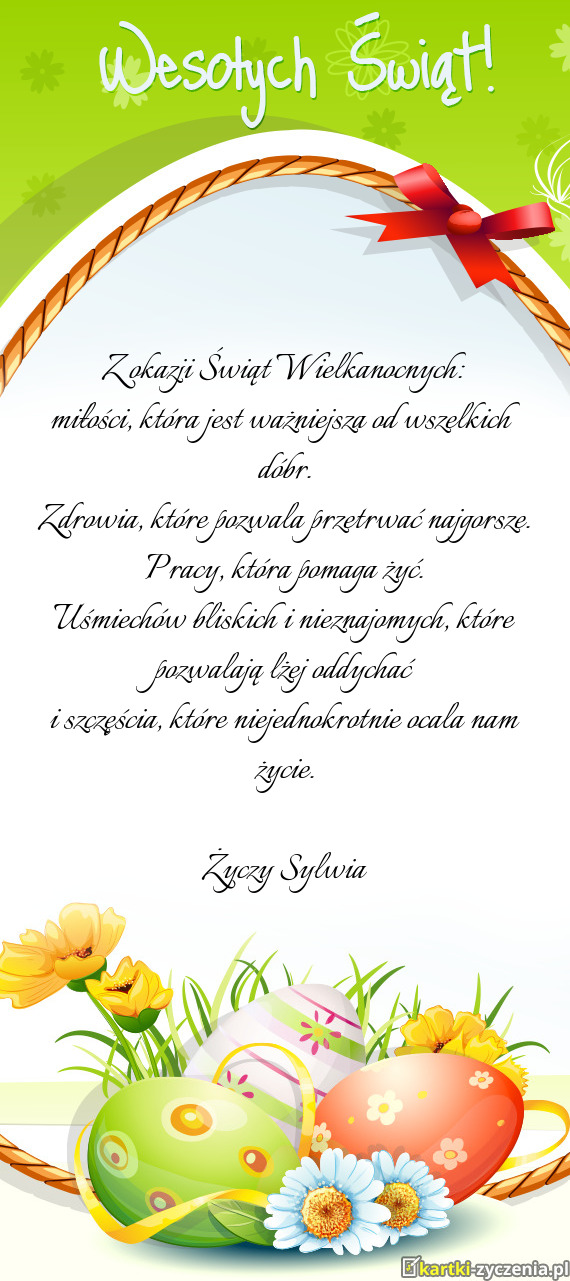 Wesołych Świąt!
Z okazji Świąt Wielkanocnych:
miłości, która jest ważniejsza od wszelkich
dóbr.
Zdrowia, które pozwala przetrwać najgorsze.
Pracy, która pomaga żyć.
Uśmiechów bliskich i nieznajomych, które
pozwalają lżej oddychać
i szczęścia, które niejednokrotnie ocala nam
życie.
Życzy Sylwia
kartki-zyczenia.pl